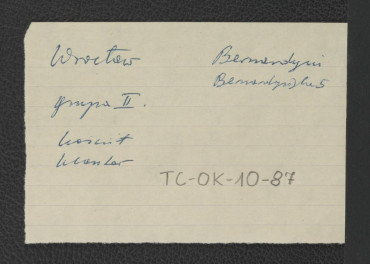 Wrocław
Bernardyni
Bernardyńska 5
grupa II.
kościół
klasztor
TC-OK-10-87